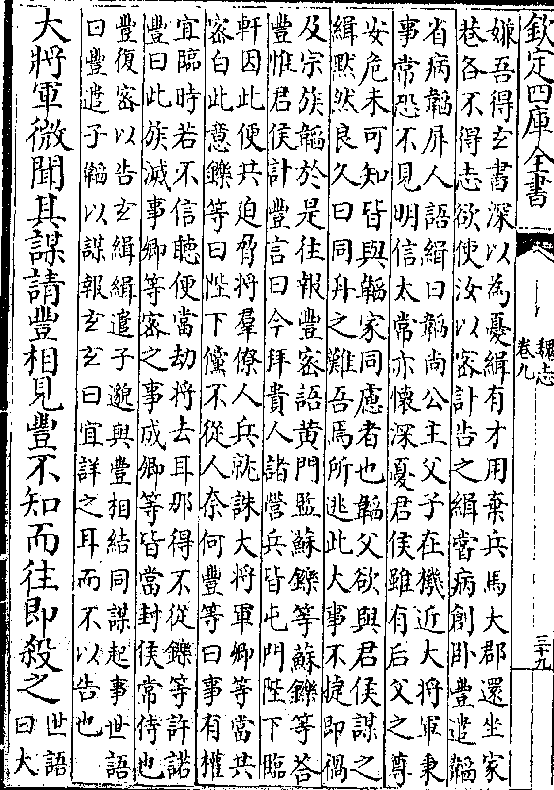 欽定四庫全書
魏志
卷九
三十九
嫌吾得玄書深以為憂緝有才用棄兵馬大郡還坐家
巷各不得志欲使汝以密計告之緝嘗病創卧豐遣韜
省病韜屏人語緝曰韜尚公主父子在機近大將軍秉
事常恐不見明信太常亦懷深憂君侯雖有后父之尊
安危未可知皆與韜家同慮者也韜父欲與君侯謀之
緝黙然良久曰同舟之難吾焉所逃此大事不捷即禍
及宗族韜於是往報豐密語黄門監蘇鑠等蘇鑠等荅
豐惟君侯計豐言曰今拜貴人諸營兵皆屯門陛下臨
軒因此便共迫脅將羣僚人兵就誅大將軍卿等當共
密白此意鑠等曰陛下儻不從人奈何豐等曰事有權
宜臨時若不信聽便當劫將去耳那得不從鑠等許諾
豐曰此族滅事卿等密之事成卿等皆當封侯常侍也
豐復密以告玄緝緝遣子邈與豐相結同謀起事世語
曰豐遣子韜以謀報玄玄曰宜詳之耳而不以告也
大將軍微聞其謀請豐相見豐不知而往即殺之
世語
曰大